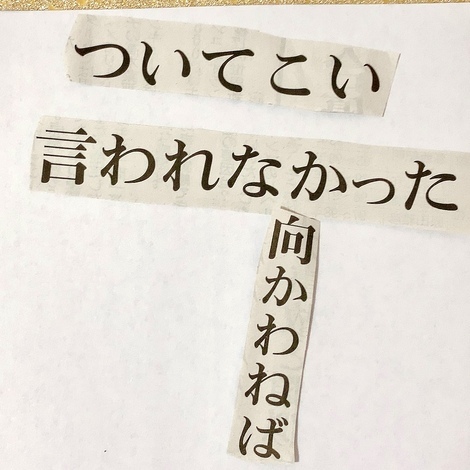 ついてこい
言われなかった
向かわねば